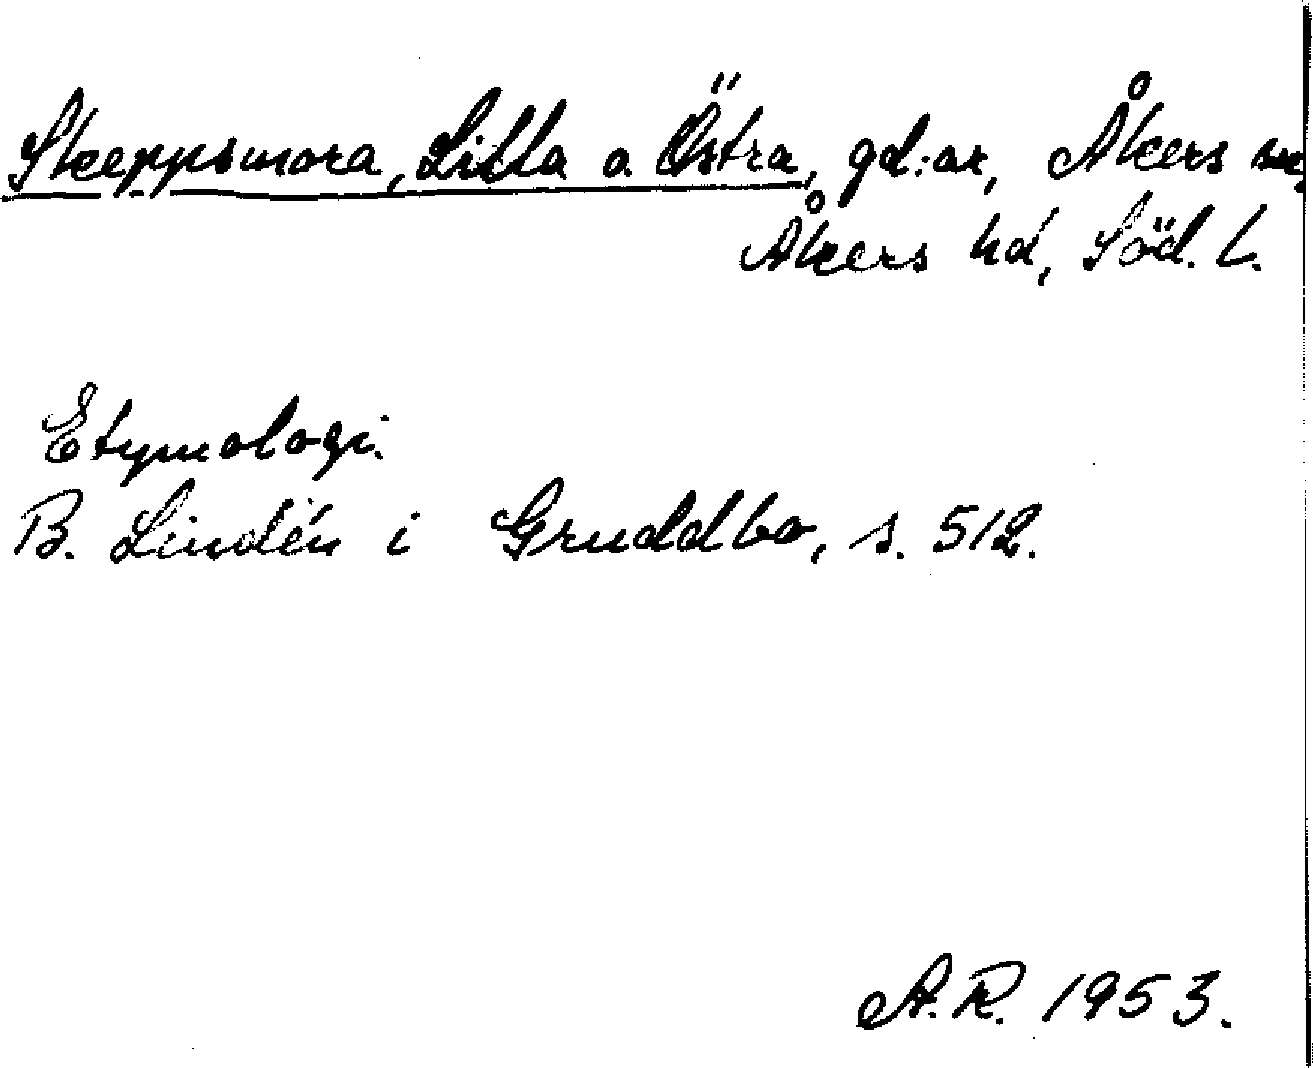 Skeppsmora, Lilla o. Östra, gd:ar, Åkers sn,
Åkers hd, Söd. l.
Etymologi.
B. Lindén i Gruddbo, s. 512.
A.R. 1953.